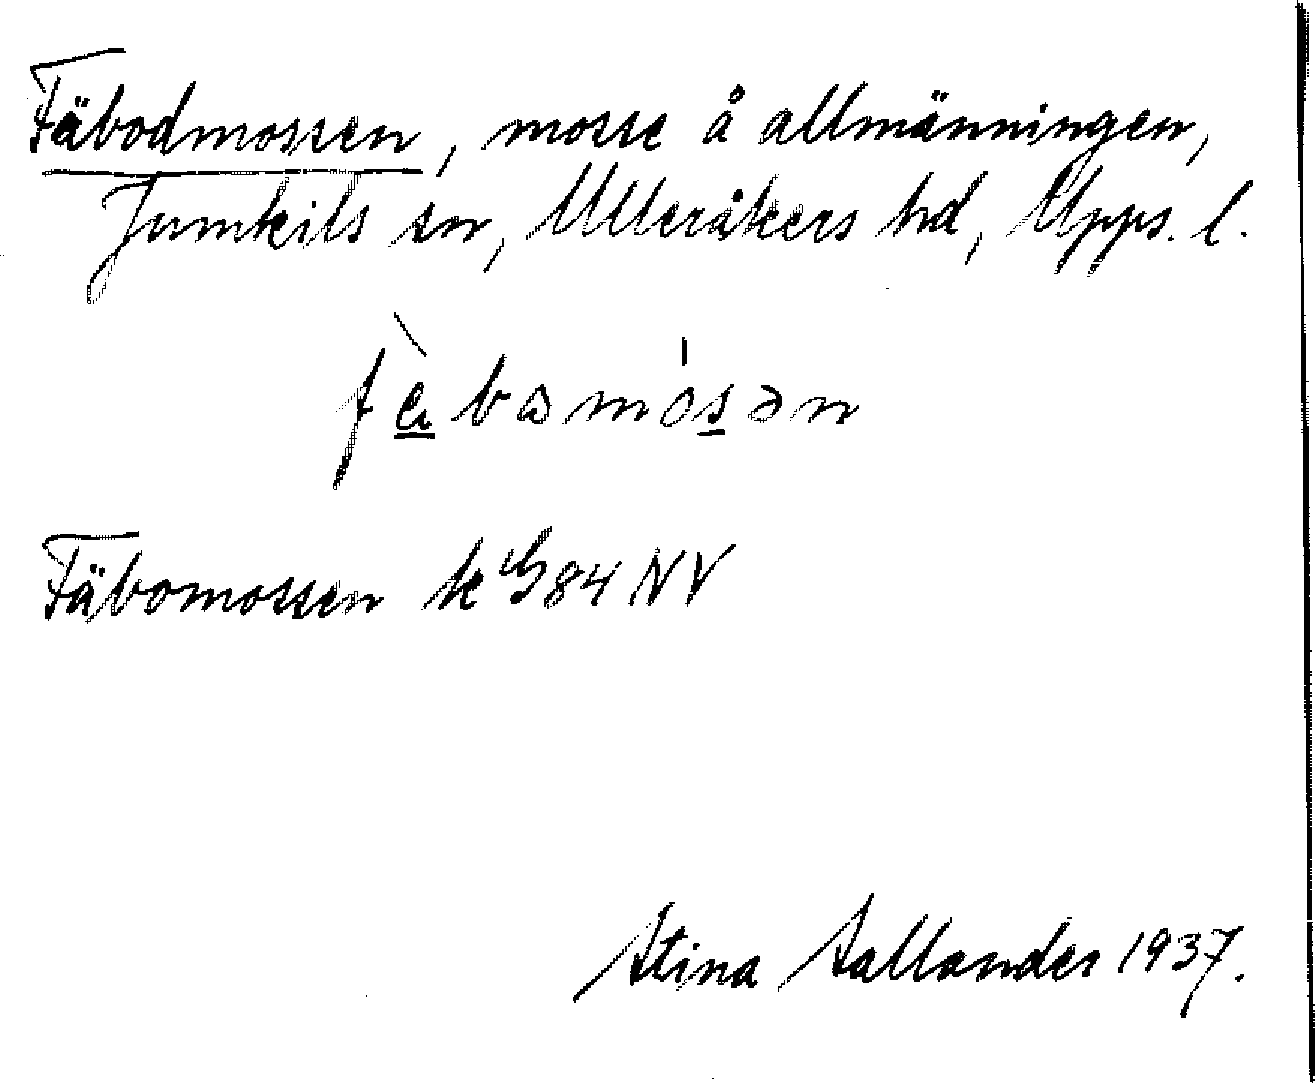 Fäbodmossen, mosse å allmänningen,
Jumkils sn, Ulleråkers hd, Upps. l.
Fäbomossen k G84 NV
Stina Sallander 1937.